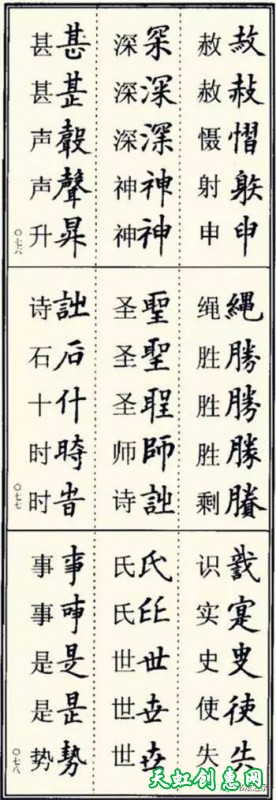 赦赦慴䠶申
赦赦慑射申
罙深深神神
深深深神神
甚甚聲昇
甚甚声声升
〇七六
繩勝勝勝賸
绳胜胜胜剩
聖聖聖師
圣圣圣师诗
石什時旹
诗石十时时
〇七七
寔史使失
识实史使失
氏氏世世世
氏氏世世世
事事是是勢
事事是是势
〇七八
天虹创惠网